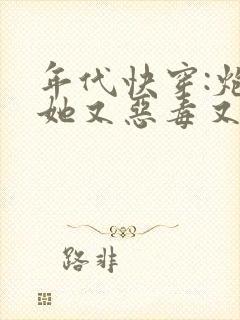 年代快穿:炮
她又惡毒又
路非